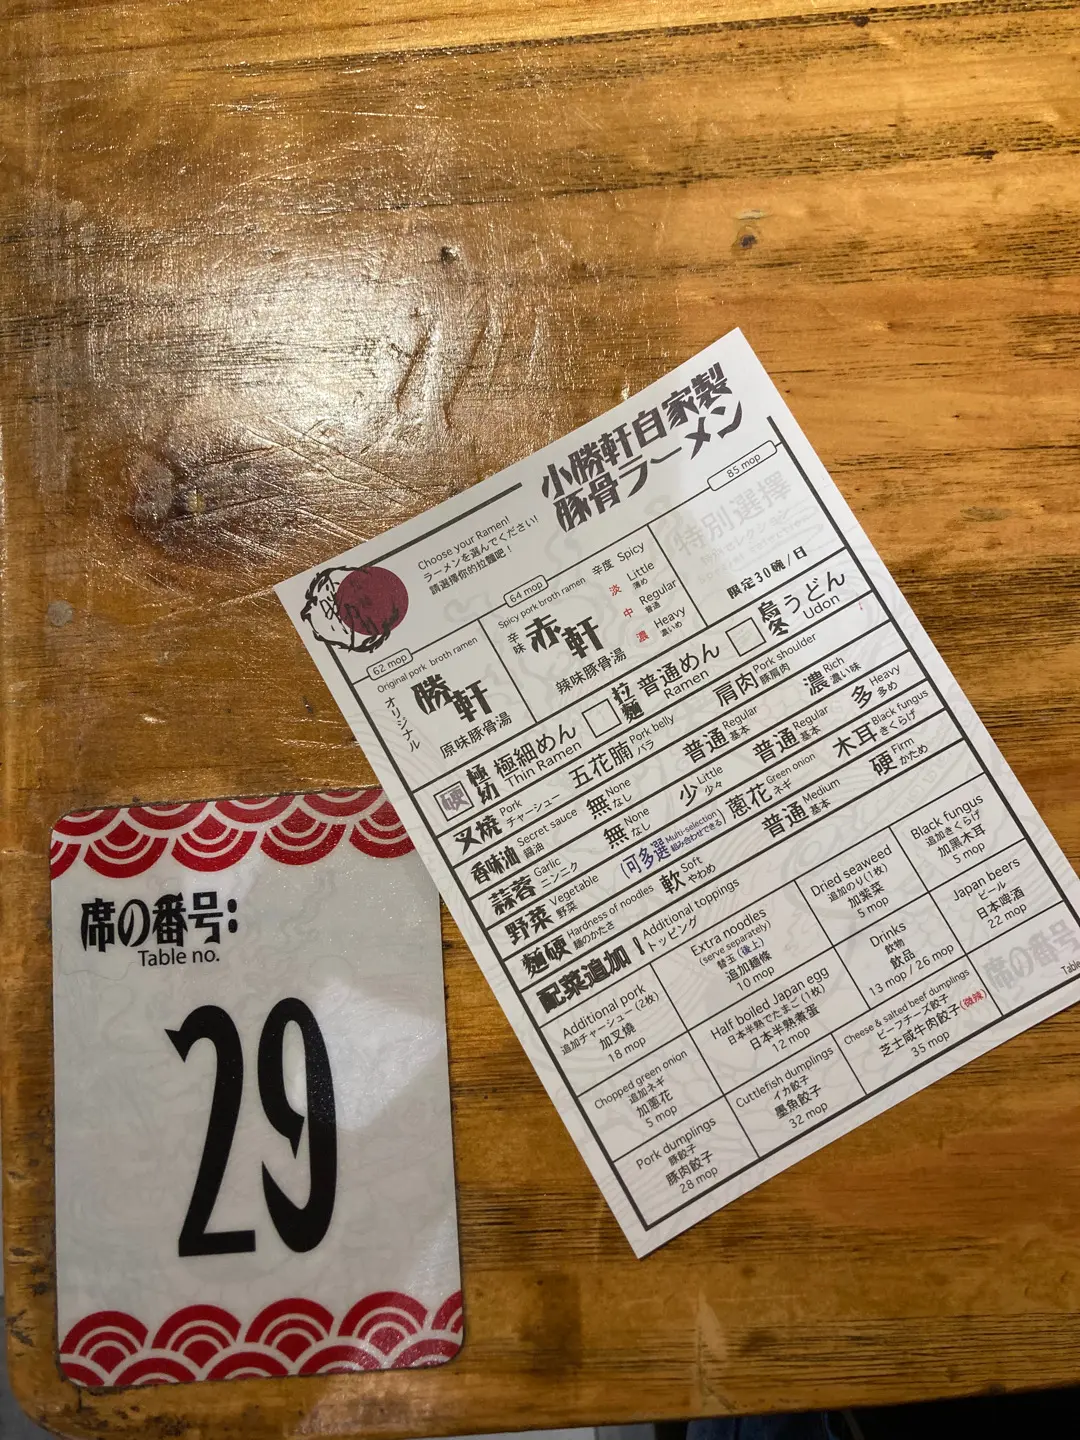 小勝軒自家製
豚骨ラーメン
Choose your Ramen!
ラーメンを選んでください!
請選擇你的拉麵吧!
62 mop
Original pork broth ramen
オリジナル
勝軒
原味豚骨湯
64 mop
Spicy pork broth ramen
辛味
赤軒
辣味豚骨湯
辛度 Spicy
淡 Little
薄め
中 Regular
普通
濃 Heavy
濃いめ
85 mop
特別選擇
限定30碗/日
硬
極幼 極細めん
Thin Ramen
拉麵 普通めん
Ramen
烏冬 うどん
Udon
叉燒 Pork
チャーシュー
五花腩 Pork belly
バラ
肩肉 Pork shoulder
豚肩肉
香味油 Secret sauce
醤油
無 None
なし
普通 Regular
基本
濃 Rich
濃い味
蒜蓉 Garlic
ニンニク
無 None
なし
少 Little
少々
普通 Regular
基本
多 Heavy
多め
野菜 Vegetable
野菜
(可多選 Multi-selection
組み合わせできる)
蔥花 Green onion
ネギ
木耳 Black fungus
きくらげ
麵硬 Hardness of noodles
麺のかたさ
軟 Soft
やわめ
普通 Medium
基本
硬 Firm
かため
配菜追加! Additional toppings
トッピング
Additional pork
追加チャーシュー(2枚)
加叉燒
18 mop
Extra noodles
(serve separately)
替玉(後上)
追加麵條
10 mop
Dried seaweed
追加のり(1枚)
加紫菜
5 mop
Black fungus
追加きくらげ
加黑木耳
5 mop
Chopped green onion
追加ネギ
加蔥花
5 mop
Half boiled Japan egg
日本半熟でたまご(1枚)
日本半熟煮蛋
12 mop
Drinks
飲物
飲品
13 mop / 26 mop
Japan beers
ビール
日本啤酒
22 mop
Pork dumplings
豚餃子
豚肉餃子
28 mop
Cuttlefish dumplings
イカ餃子
墨魚餃子
32 mop
Cheese & salted beef dumplings
ビーフチーズ餃子
芝士咸牛肉餃子(微辣)
35 mop
席の番号
Table
席の番号:
Table no.
29